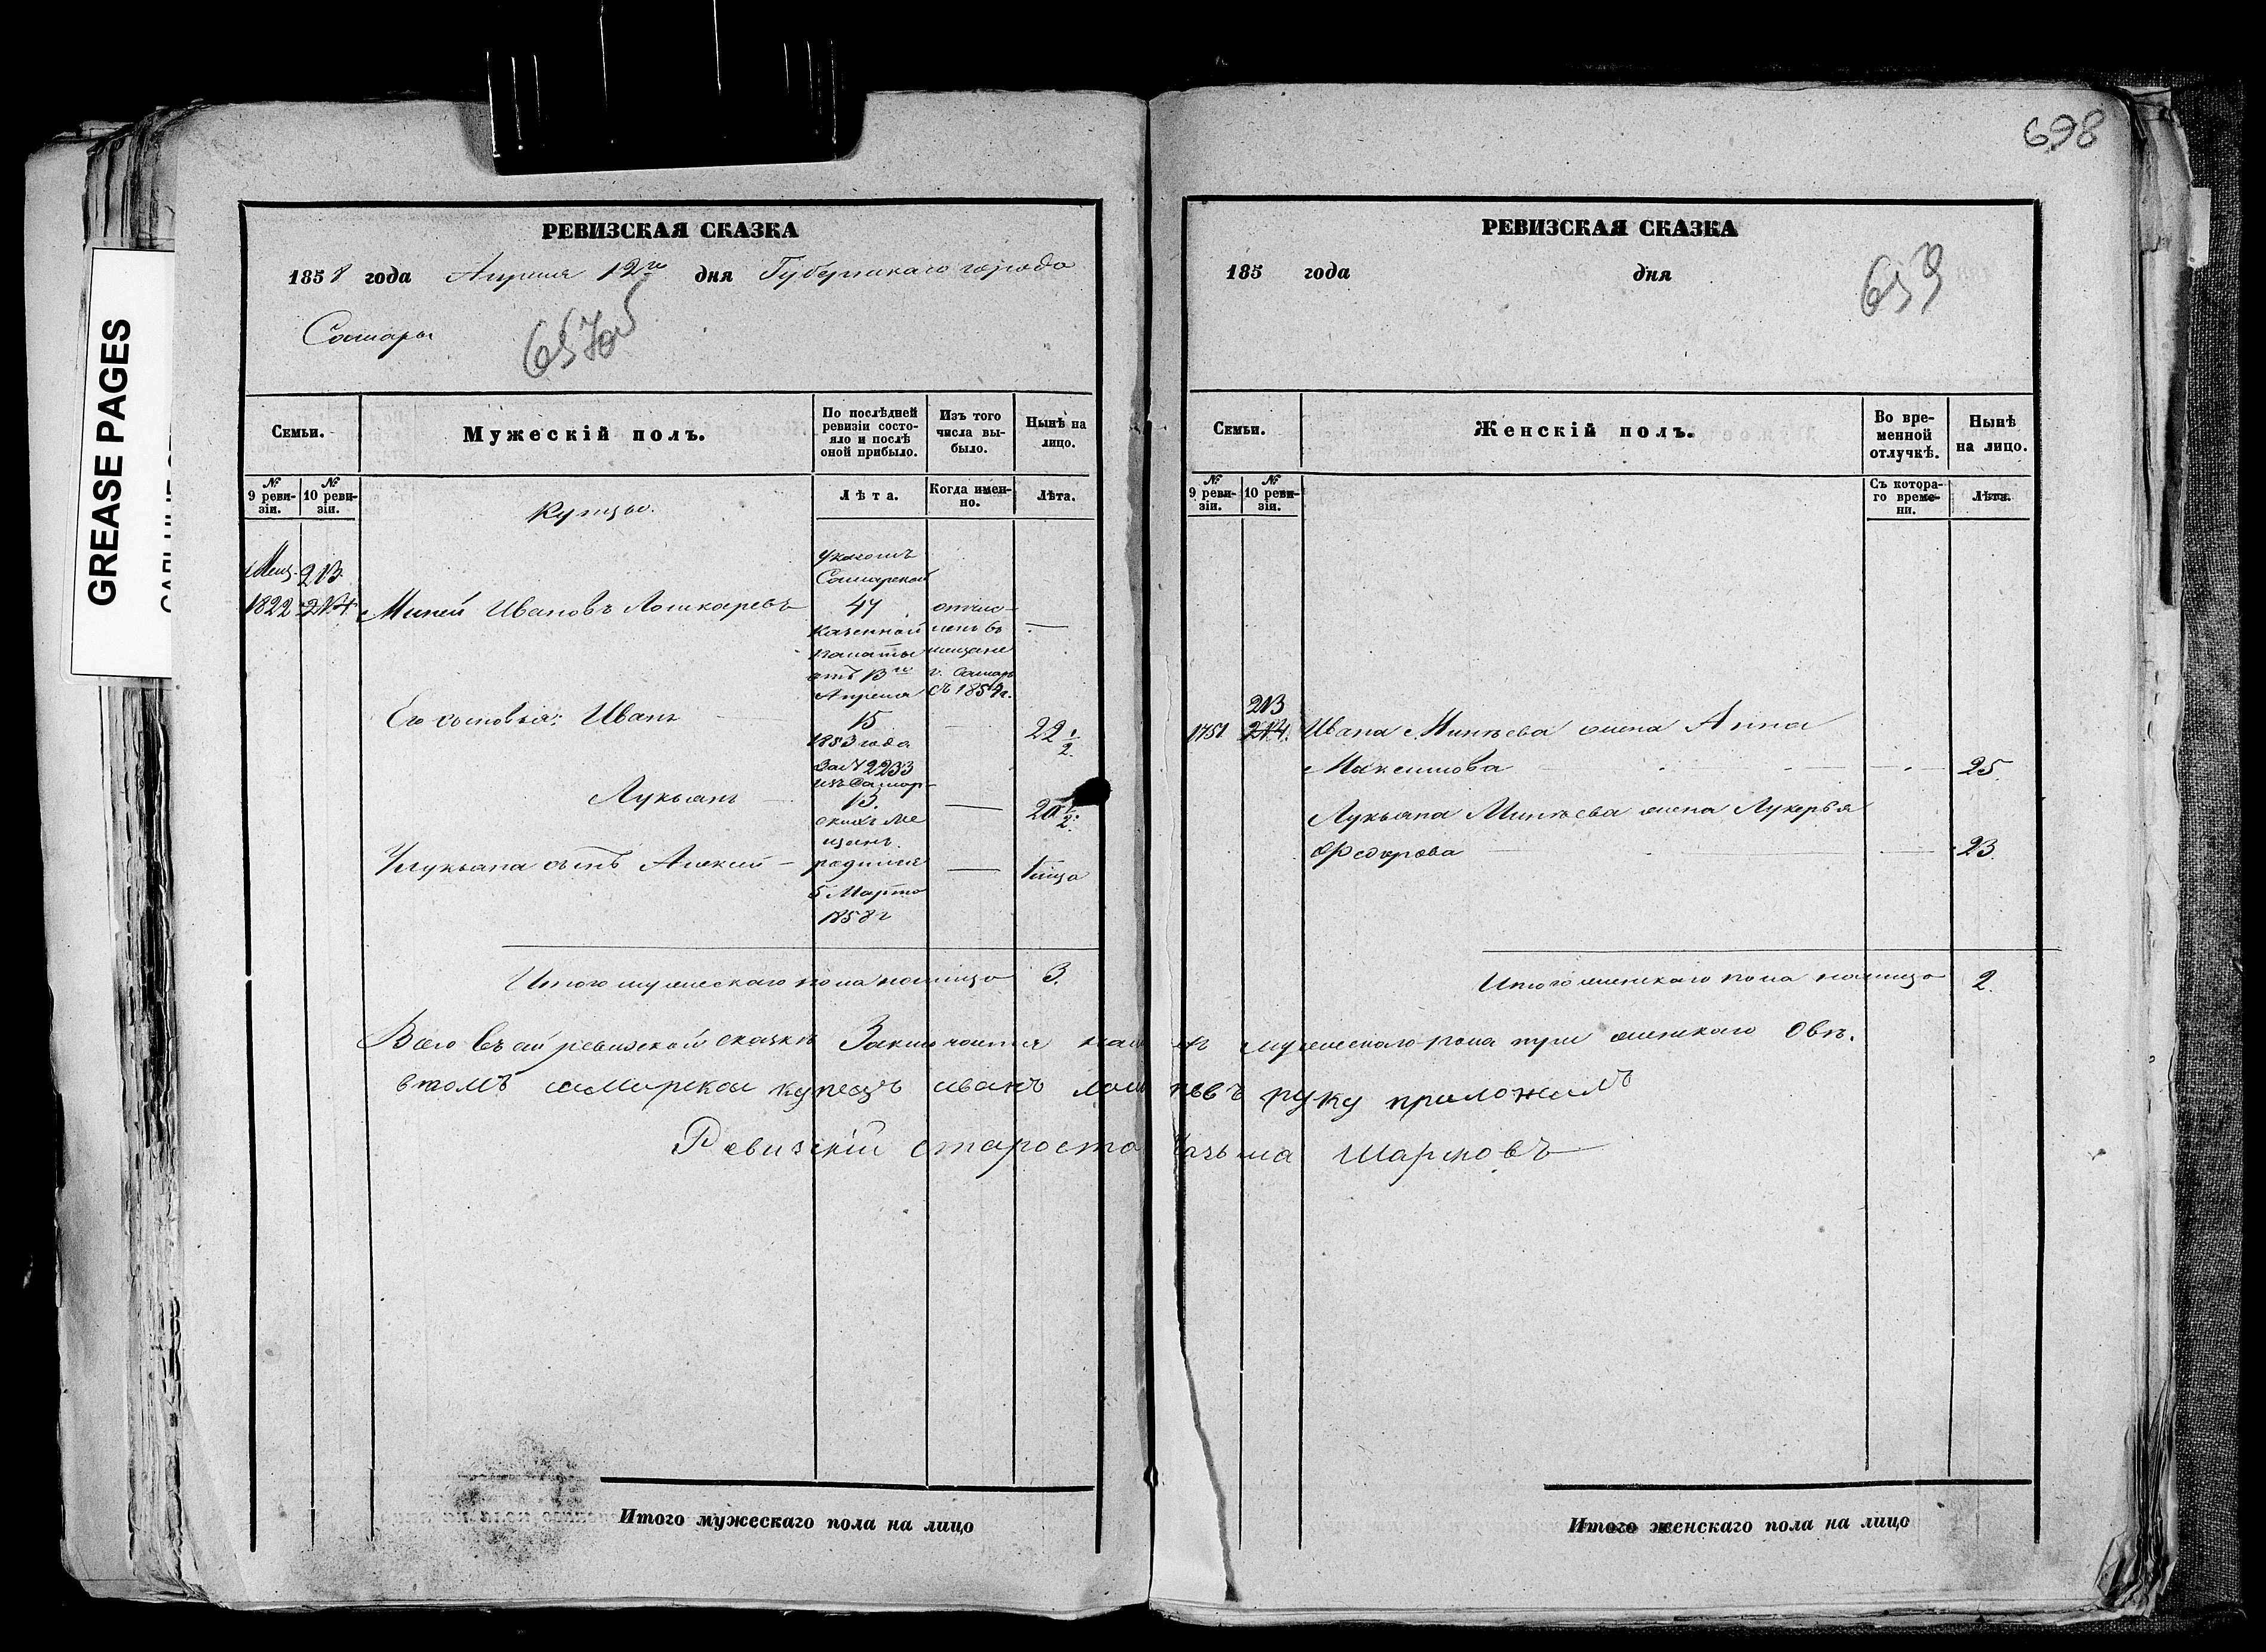 698
GREASE PAGES
РЕВИЗСКАЯ СКАЗКА
1858 года Апреля 12го дня Губернскаго города
Самары
Семьи.
Мужескій полъ.
По послѣдней ревизіи состояло и послѣ оной прибыло.
Изъ того числа выбыло.
Нынѣ на лицо.
№ 9 ревизіи.
№ 10 ревизіи.
Купцы.
Лѣта.
Когда именно.
Лѣта.
Мещ. 213
1822 214 Миней Ивановъ Лошкаревъ 47 —
Указомъ
Самарской
Казенной
Палаты
отъ 13го
Апреля
1853 года
за № 2233
изъ Самар-
скихъ ме
щанъ.
отчис-
ленъ въ
мещане
г. Самары
съ 1854г.
Его сыновья: Иванъ — 15 — 22 1/2
Лукьянъ — 13. — 20 1/2
У Лукьяна сынъ Алексей — родился — 1 мца
5 Марта
1858 г
Итого мужескаго пола налицо 3.
Всего въ сей ревизской сказкѣ Заключается
втомъ купецъ иванъ
Ревизскій староста
Итого мужескаго пола на лицо
РЕВИЗСКАЯ СКАЗКА
185 года дня
659
Семьи.
Женскій полъ.
Во временной отлучкѣ.
Нынѣ на лицо.
№ 9 ревизіи.
№ 10 ревизіи.
Съ котораго времени.
Лѣта.
213
1751 214. Ивана Минѣева жена Анна
Максимова — 25.
Лукьяна Минѣева жена Лукерья
Федорова — 23.
Итого женскаго пола налицо 2.
мужескаго пола три женскаго Двѣ.
руку приложилъ
Шариковъ
Итого женскаго пола на лицо